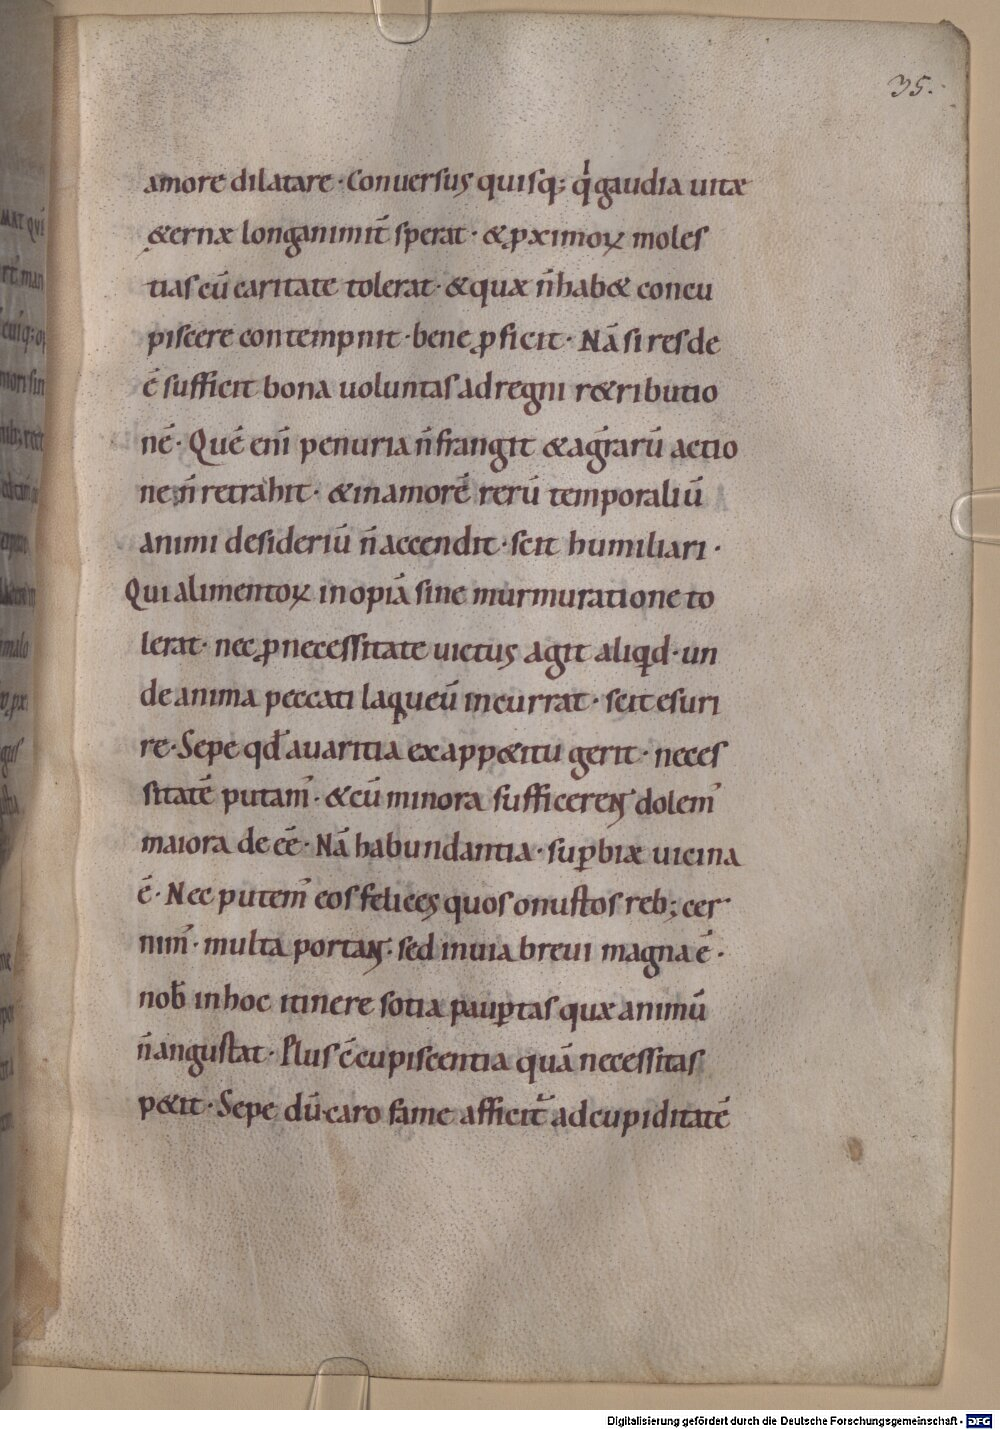 35.
amore dilatare · Conuersus quisq; q̍ gaudia uitæ
&ernæ longanimit̄ sperat · & ꝓximoꝝ moles
tias cū caritate tolerat · & quæ n̄ hab& concu
piscere contempnit · bene ꝓficit · Nā si res de
ē sufficit bona uoluntas ad regni r&ributio
nē · Quē eni̅ penuria n̄ frangit & agrarū actio
ne n̄ retrahit · & in amorē rerū temporaliū
animi desideriū n̄ accendit · scit humiliari ·
Qui alimentoꝝ inopiā sine murmuratione to
lerat · nec ꝓ necessitate uictus agit aliqd · un
de anima peccati laqueū incurrat · scit esuri
re · Sepe qđ auaritia ex app&itu gerit · neces
sitatē putam̄ · & cū minora sufficerent dolem̄
maiora de eē · Nā habundantia · suꝑbiæ uicina
ē · Nec putem̄ eos felices quos onustos reb; cer
nim̄ · multa portant · sed in uia breui magna ē ·
nob̄ in hoc itinere sotia pauꝑtas quæ animū
n̄ angustat · Plus c̄cupiscentia quā necessitas
p&it · Sepe dū caro fame afficit̄ ad cupiditatē
Digitalisierung gefördert durch die Deutsche Forschungsgemeinschaft - DFG